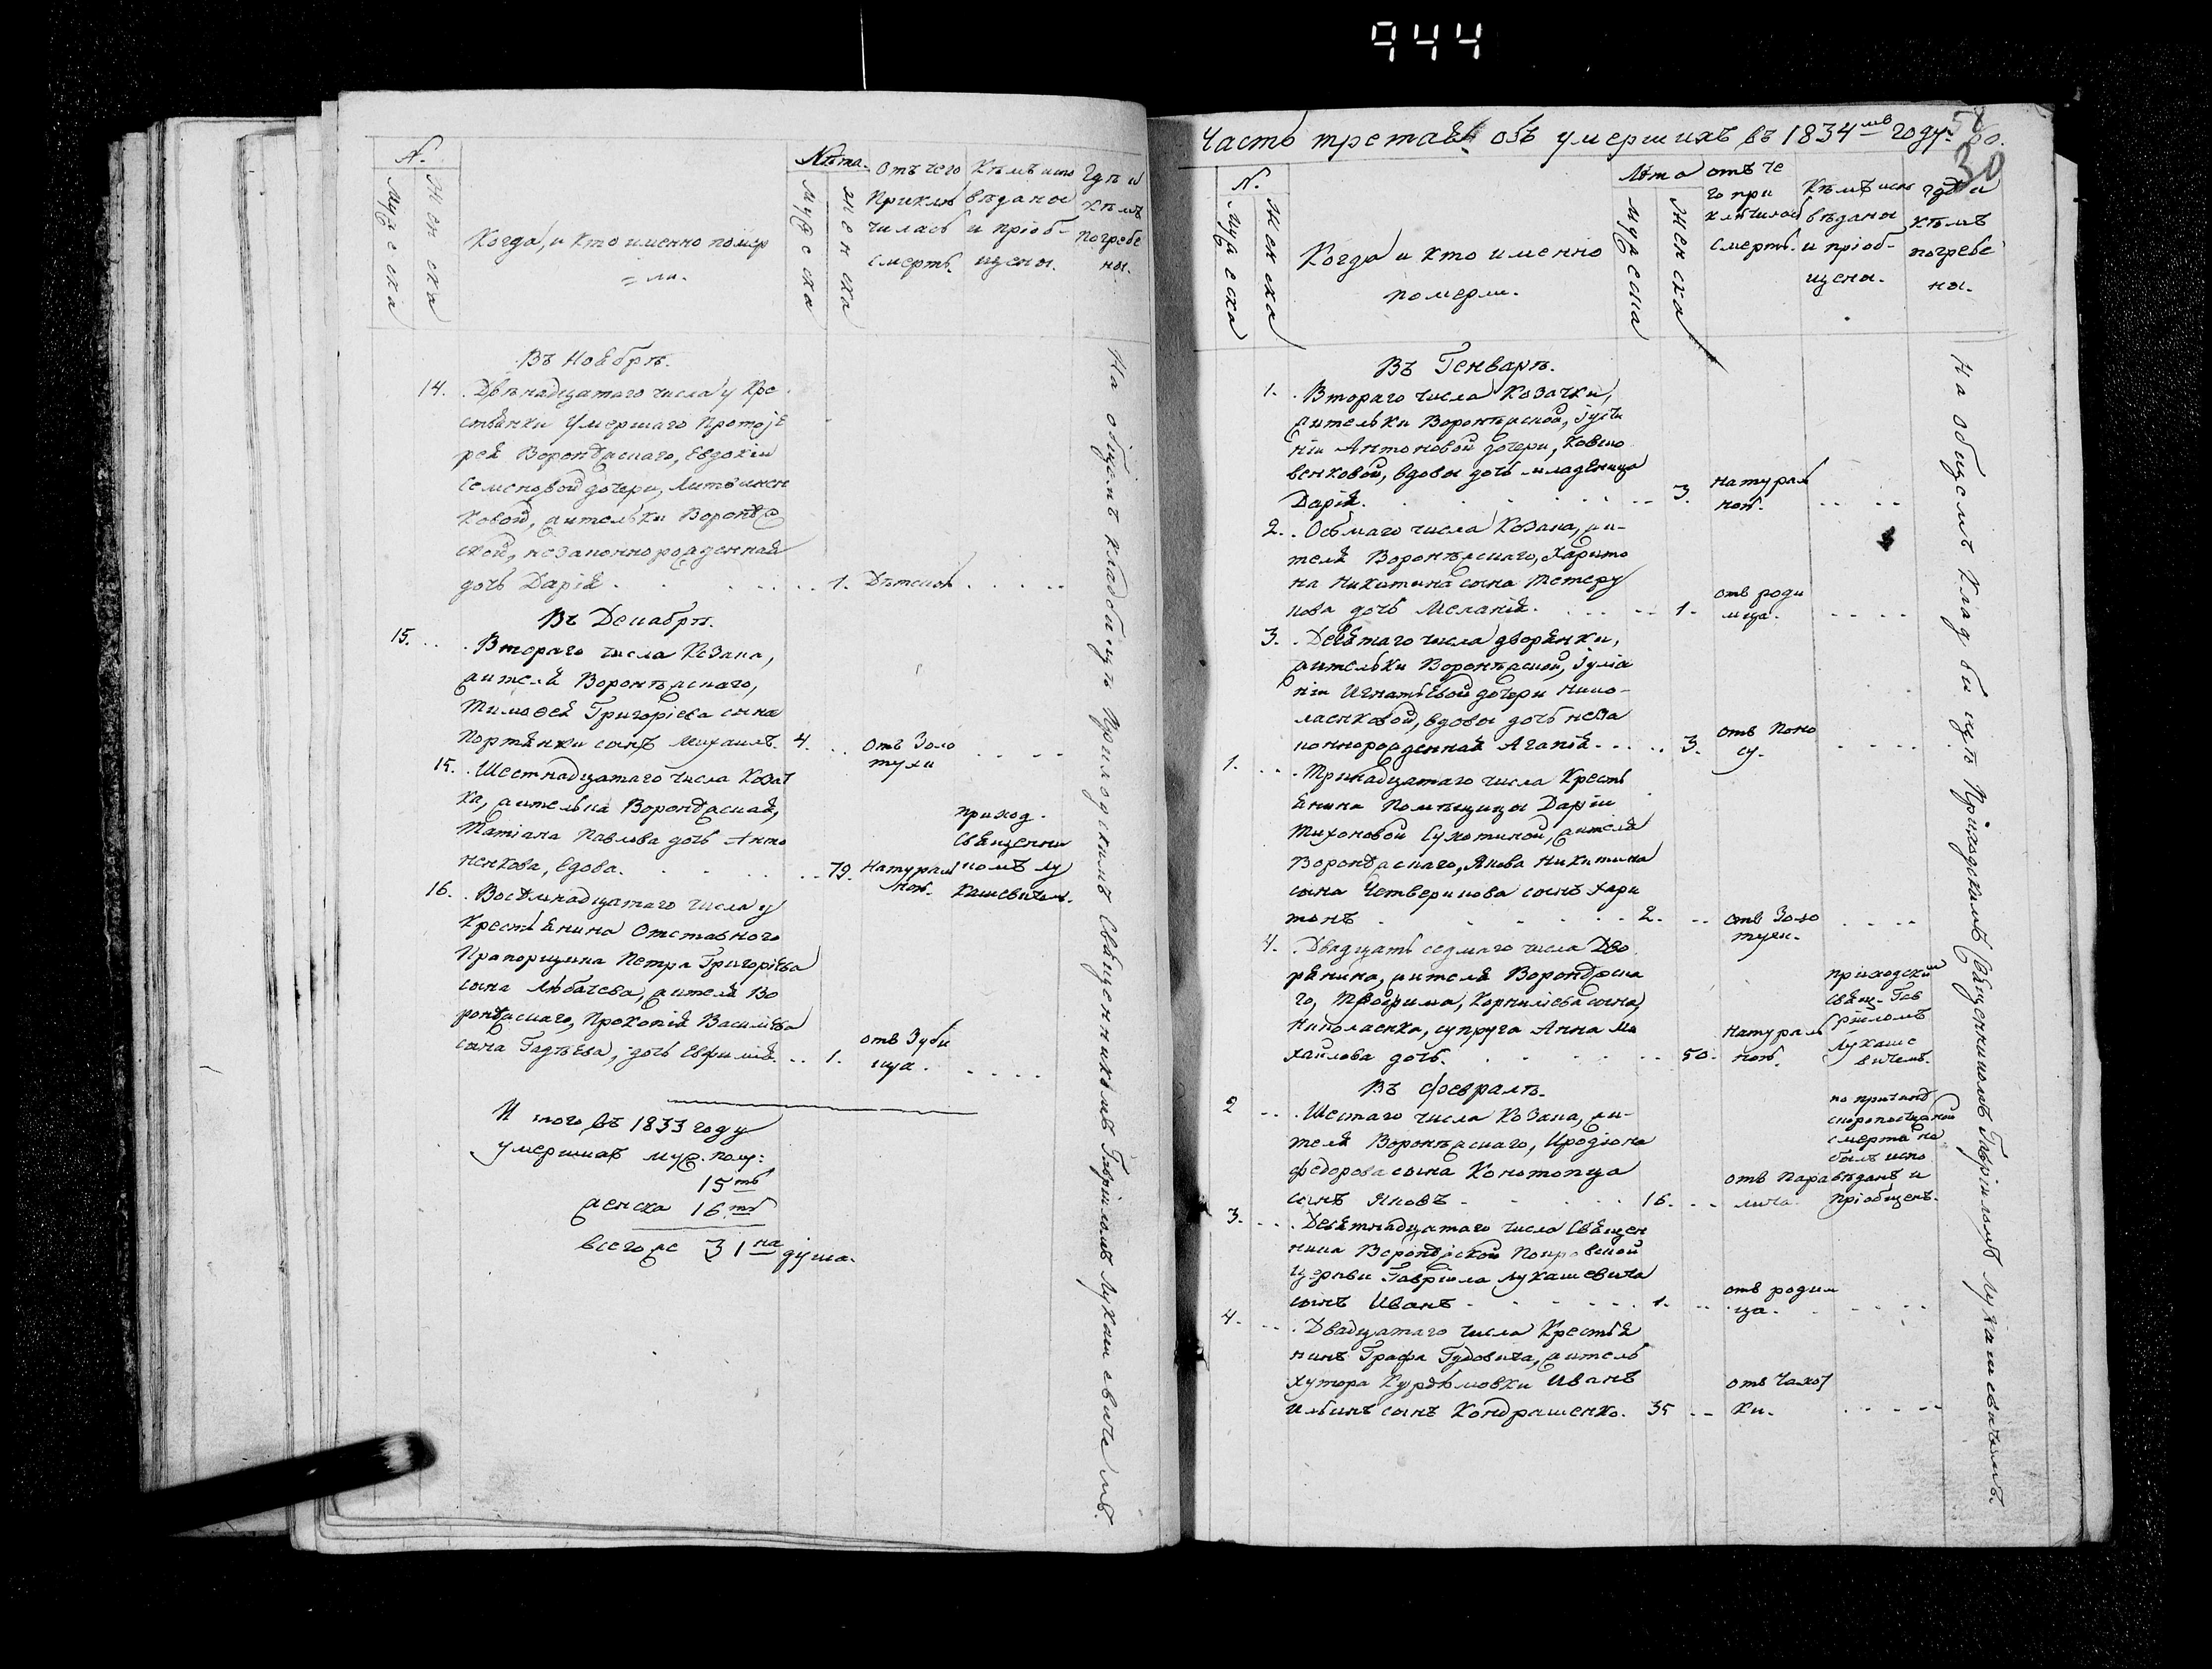 944
N.
Мужеска
Женска
Когда, и кто именно помер
= ли.
Лѣта.
Мужеска
Женска
Отъ чего
Приклю
чилась
смерть.
Кѣмъ испо
вѣданы
и пріоб-
щены.
Гдѣ и
кѣмъ
погребе
ны.
Въ Ноябрѣ.
14. Двѣнадцатаго числа у Кре
стьянки Умершаго Протоіе
рея Воронѣжскаго, Евдокіи
Семеновой дочери, Литвинен
ковой, жительки Воронѣж
ской, незаконнорожденная
дочь Дарія . . . . . 1. Дѣтской . . . .
Въ Декабрѣ.
15. . . . Втораго числа Козака,
жителя Воронѣжскаго,
Тимоѳея Григоріева сына
Портянки сынъ Михаилъ. 4. . . отъ Золо
тухи . . . .
15. . Шестнадцатаго числа Козач
ка, жителька Воронѣжская,
Татіана Павлова дочь Анто
ненкова, вдова. . . . . . . 79. Натураль
ной.
приход.
Священни
комъ Лу
кашевичомъ.
16. . Восѣмнадцатаго числа у
Крестьянина Отставного
Прапорщика Петра Григоріева
сына Любачева, жителя Во
ронѣжскаго, Прокопія Васильева
сына Гадѣева, дочь Евфимія. . . 1. отъ Зуби
ща. . . . .
И того въ 1833 году
умершихъ муж. полу:
15ть
женска 16ть
всего же 31на душа.
На общемъ кладбищѣ Приходскимъ Священникомъ Гавріиломъ Лукашевичемъ.
Часть третая объ умершихъ въ 1834мъ году.
30
N.
Мужеска
Женска
Когда и кто именно
померли.
Лѣта
Мужеска
Женска
отъ че
го при
ключилась
смерть.
Кѣмъ испо
вѣданы
и пріоб-
щены.
гдѣ и
кѣмъ
погребе
ны.
Въ Генварѣ.
1. . Втораго числа Козачки,
жительки Воронѣжской, Іусти
ніи Антоновой дочери, Ковшо
венковой, вдовы дочь младеница
Дарія. . . . . . . 3. натураль
ной. . . . .
2. . Осьмаго числа Козака, жи-
теля Воронѣжскаго, Харито
на Никитина сына Тетеру
кова дочь Меланія. . . . . 1. отъ роди
мца. . . . .
3. . Девятаго числа дворянки,
жительки Воронѣжской, Іулiа
ніи Игнатьевой дочери Нико-
лаенковой, вдовы дочь неза
коннорожденная Агапія. . . . . 3. отъ Поно
су. . . . .
1. . . . Тринадцатаго числа Кресть
янина Помѣщицы Даріи
Тихоновой Сухотиной, жителя
Воронѣжскаго, Якова Никитина
сына Четверикова сынъ Хари
тонъ . . . . . . 2. . . отъ Золо
тухи. . . . .
4. . Двадцать седмаго числа Дво
рянина, жителя Воронѣжска
го, Корнилiева сына,
Николаенка, супруга Анна Ми
хайлова дочь. . . . . . . 50. Натураль
ной.
приходским
Свящ. Гав
ріиломъ
Лукаше
вичемъ.
Въ Февралѣ.
2 . . . Шестаго числа Козака, жи-
теля Воронѣжскаго, Иродiона
Федорова сына Конотопца
сынъ Яковъ . . . . . 16. . . отъ Пара
лича.
по причинѣ
скоропостижной
смерти не
былъ испо
вѣданъ и
пріобщенъ.
3. . . . Девятнадцатаго числа Священ
ника Воронѣжской Покровской
Церкви Гавріила Лукашевича
сынъ Иванъ . . . . . . 1. . . отъ родим
ца. . . . .
4. . . . Двадцатаго числа Крестья
нинъ Графа Гудовича, житель
хутора Курдюмовки Иванъ
Ильинъ сынъ Кондрашенко. 35 . . отъ Чахот
ки. . . . .
На общемъ Кладбищѣ Приходскимъ Священникомъ Гавріиломъ Лукашевичемъ.